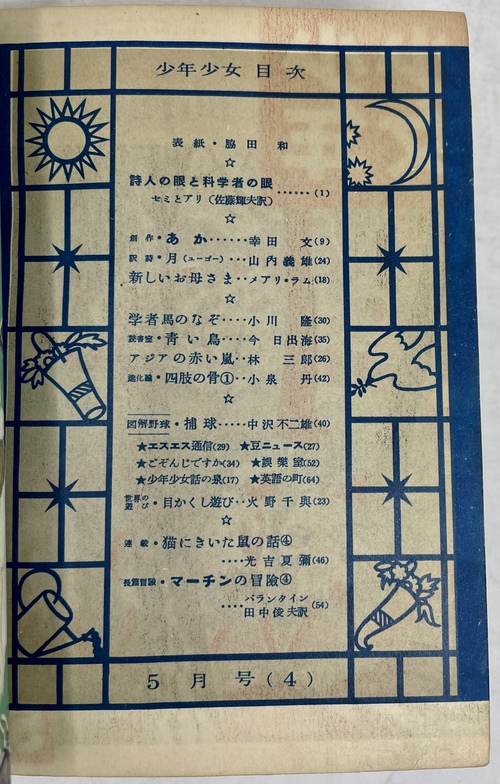 少年少女目次
表紙・脇田 和
☆
詩人の眼と科学者の眼
セミとアリ(佐藤輝夫訳)……(1)
☆
創作・あか……幸田 文(9)
訳詩・月(ユーゴー)‥山内義雄(24)
新しいお母さま‥メアリ・ラム(18)
☆
学者馬のなぞ‥‥小川 隆(30)
読書室・青い鳥‥‥今 日出海(35)
アジアの赤い嵐‥林 三郎(26)
進化論・四肢の骨①‥小泉 丹(42)
☆
図解野球・捕球‥‥‥中沢不二雄(40)
★エスエス通信(29) ★豆ニュース(27)
★ごぞんじですか(34) ★娯楽室(52)
★少年少女話の泉(17) ★英語の町(64)
世界の遊び・目かくし遊び‥火野千與(23)
☆
連載・猫にきいた鼠の話④
‥‥光吉夏彌(46)
長篇冒險・マーチンの冒險④
‥‥バランタイン
田中俊夫訳(54)
5月号(4)